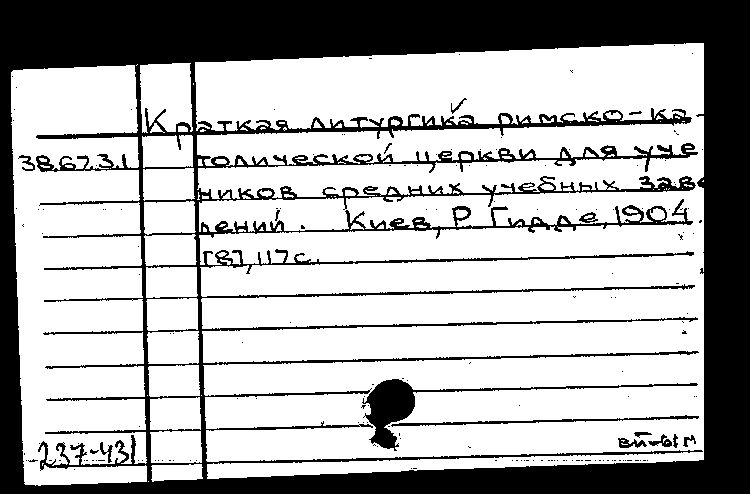 Краткая литургика римско-ка-
38.67.3.1 толической церкви для уче
ников средних учебных заве
дений. Киев, Р Гидде, 1904.
[8], 117 с.
237-431